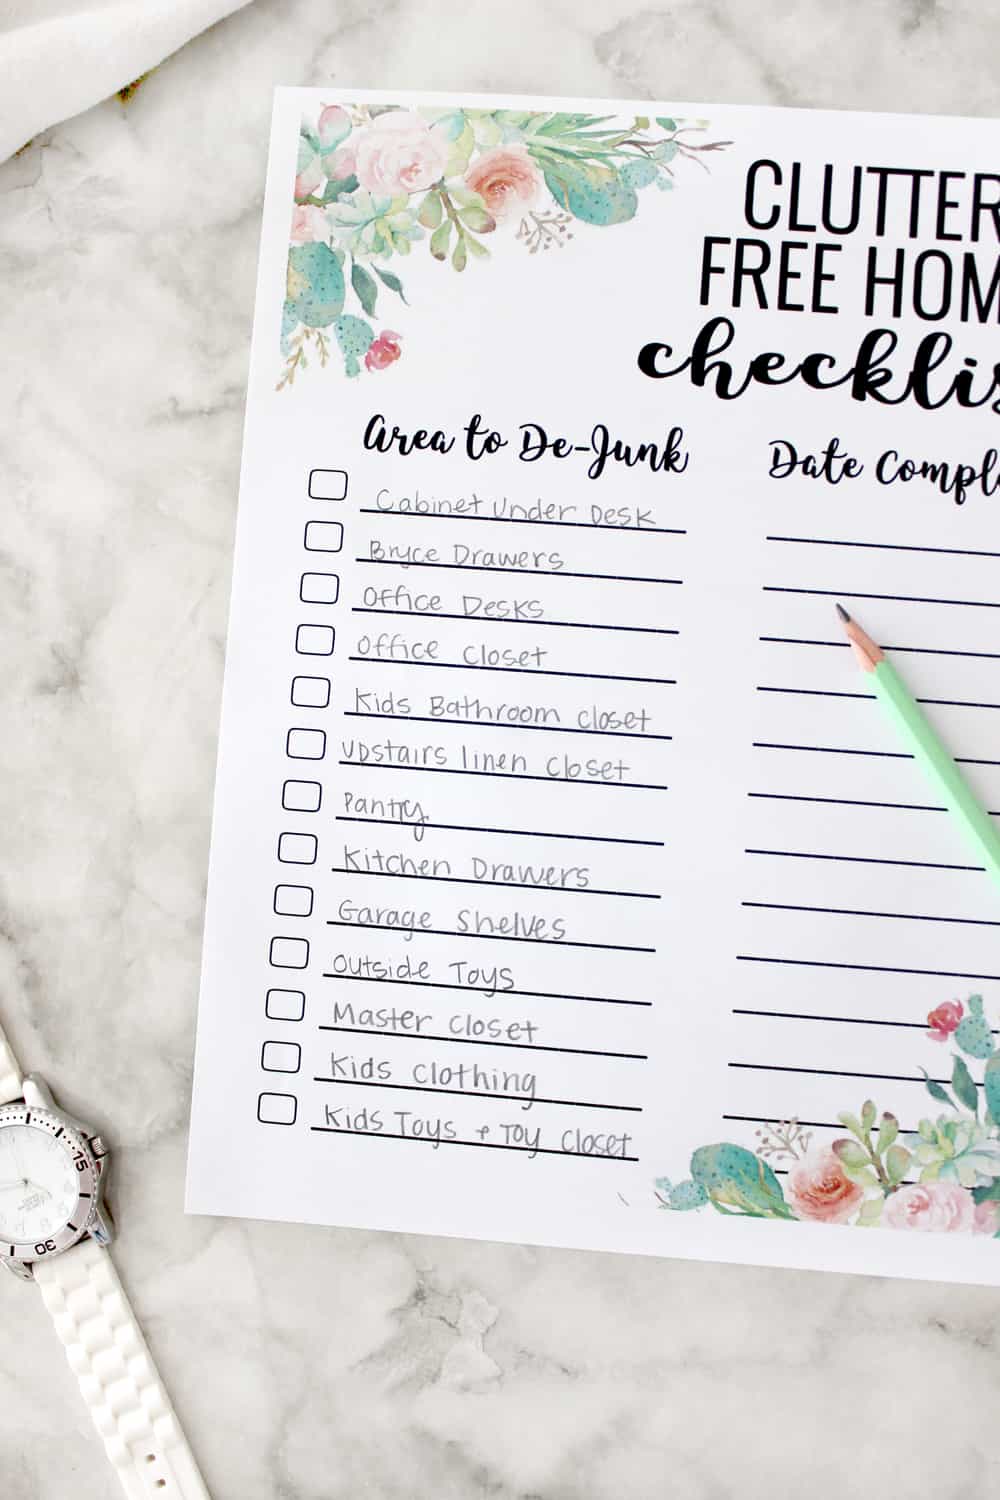 CLUTTER
FREE HOM
checklis
Area to De-Junk
Date Comple
Cabinet Under Desk
Bryce Drawers
Office Desks
Office Closet
Kids Bathroom closet
upstairs linen closet
Pantry
Kitchen Drawers
Garage Shelves
Outside Toys
Master Closet
Kids Clothing
Kids Toys + Toy Closet
15
30